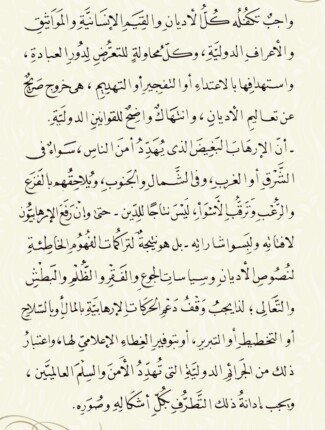 واجبٌ تكفُلُه كُلُّ الأديانِ والقِيَمِ الإنسانيَّةِ والمَوَاثيقِ
والأعرافِ الدوليَّةِ، وكلُّ محاولةٍ للتعرُّضِ لِدُورِ العبادةِ،
واستهدافِها بالاعتداءِ أو التفجيرِ أو التهديمِ، هي خروجٌ صَرِيحٌ
عن تعاليمِ الأديانِ، وانتهاكٌ واضحٌ للقوانينِ الدوليَّةِ.
- أنَّ الإرهابَ البَغِيضَ الذى يُهدِّدُ أمنَ الناسِ، سَوَاءٌ فى
الشَّرْقِ أو الغربِ، وفى الشَّمالِ والجَنوبِ، ويُلاحِقُهم بالفَزَعِ
والرُّعْبِ وتَرَقُّبِ الأَسْوَأِ، لَيْسَ نِتاجًا للدِّين - حتى وإنْ رَفَعَ الإرهابيُّون
لافتاتِه ولَبِسُوا شاراتِه - بل هو نتيجةٌ لتراكُماتِ الفُهُومِ الخاطئةِ
لنُصُوصِ الأديانِ وسِياساتِ الجُوعِ والفَقْرِ والظُّلْمِ والبَطْشِ
والتَّعالى؛ لذا يجبُ وَقْفُ دَعْمِ الحَرَكاتِ الإرهابيَّةِ بالمالِ أو بالسِّلاحِ
أو التخطيطِ أو التبريرِ، أو بتوفيرِ الغِطاءِ الإعلاميِّ لها، واعتبارُ
ذلك من الجَرائِمِ الدوليَّةِ التى تُهدِّدُ الأَمْنَ والسِّلْمَ العالميَّين،
ويجب إدانةُ ذلك التَّطرُّفِ بكُلِّ أشكالِه وصُوَرِه.